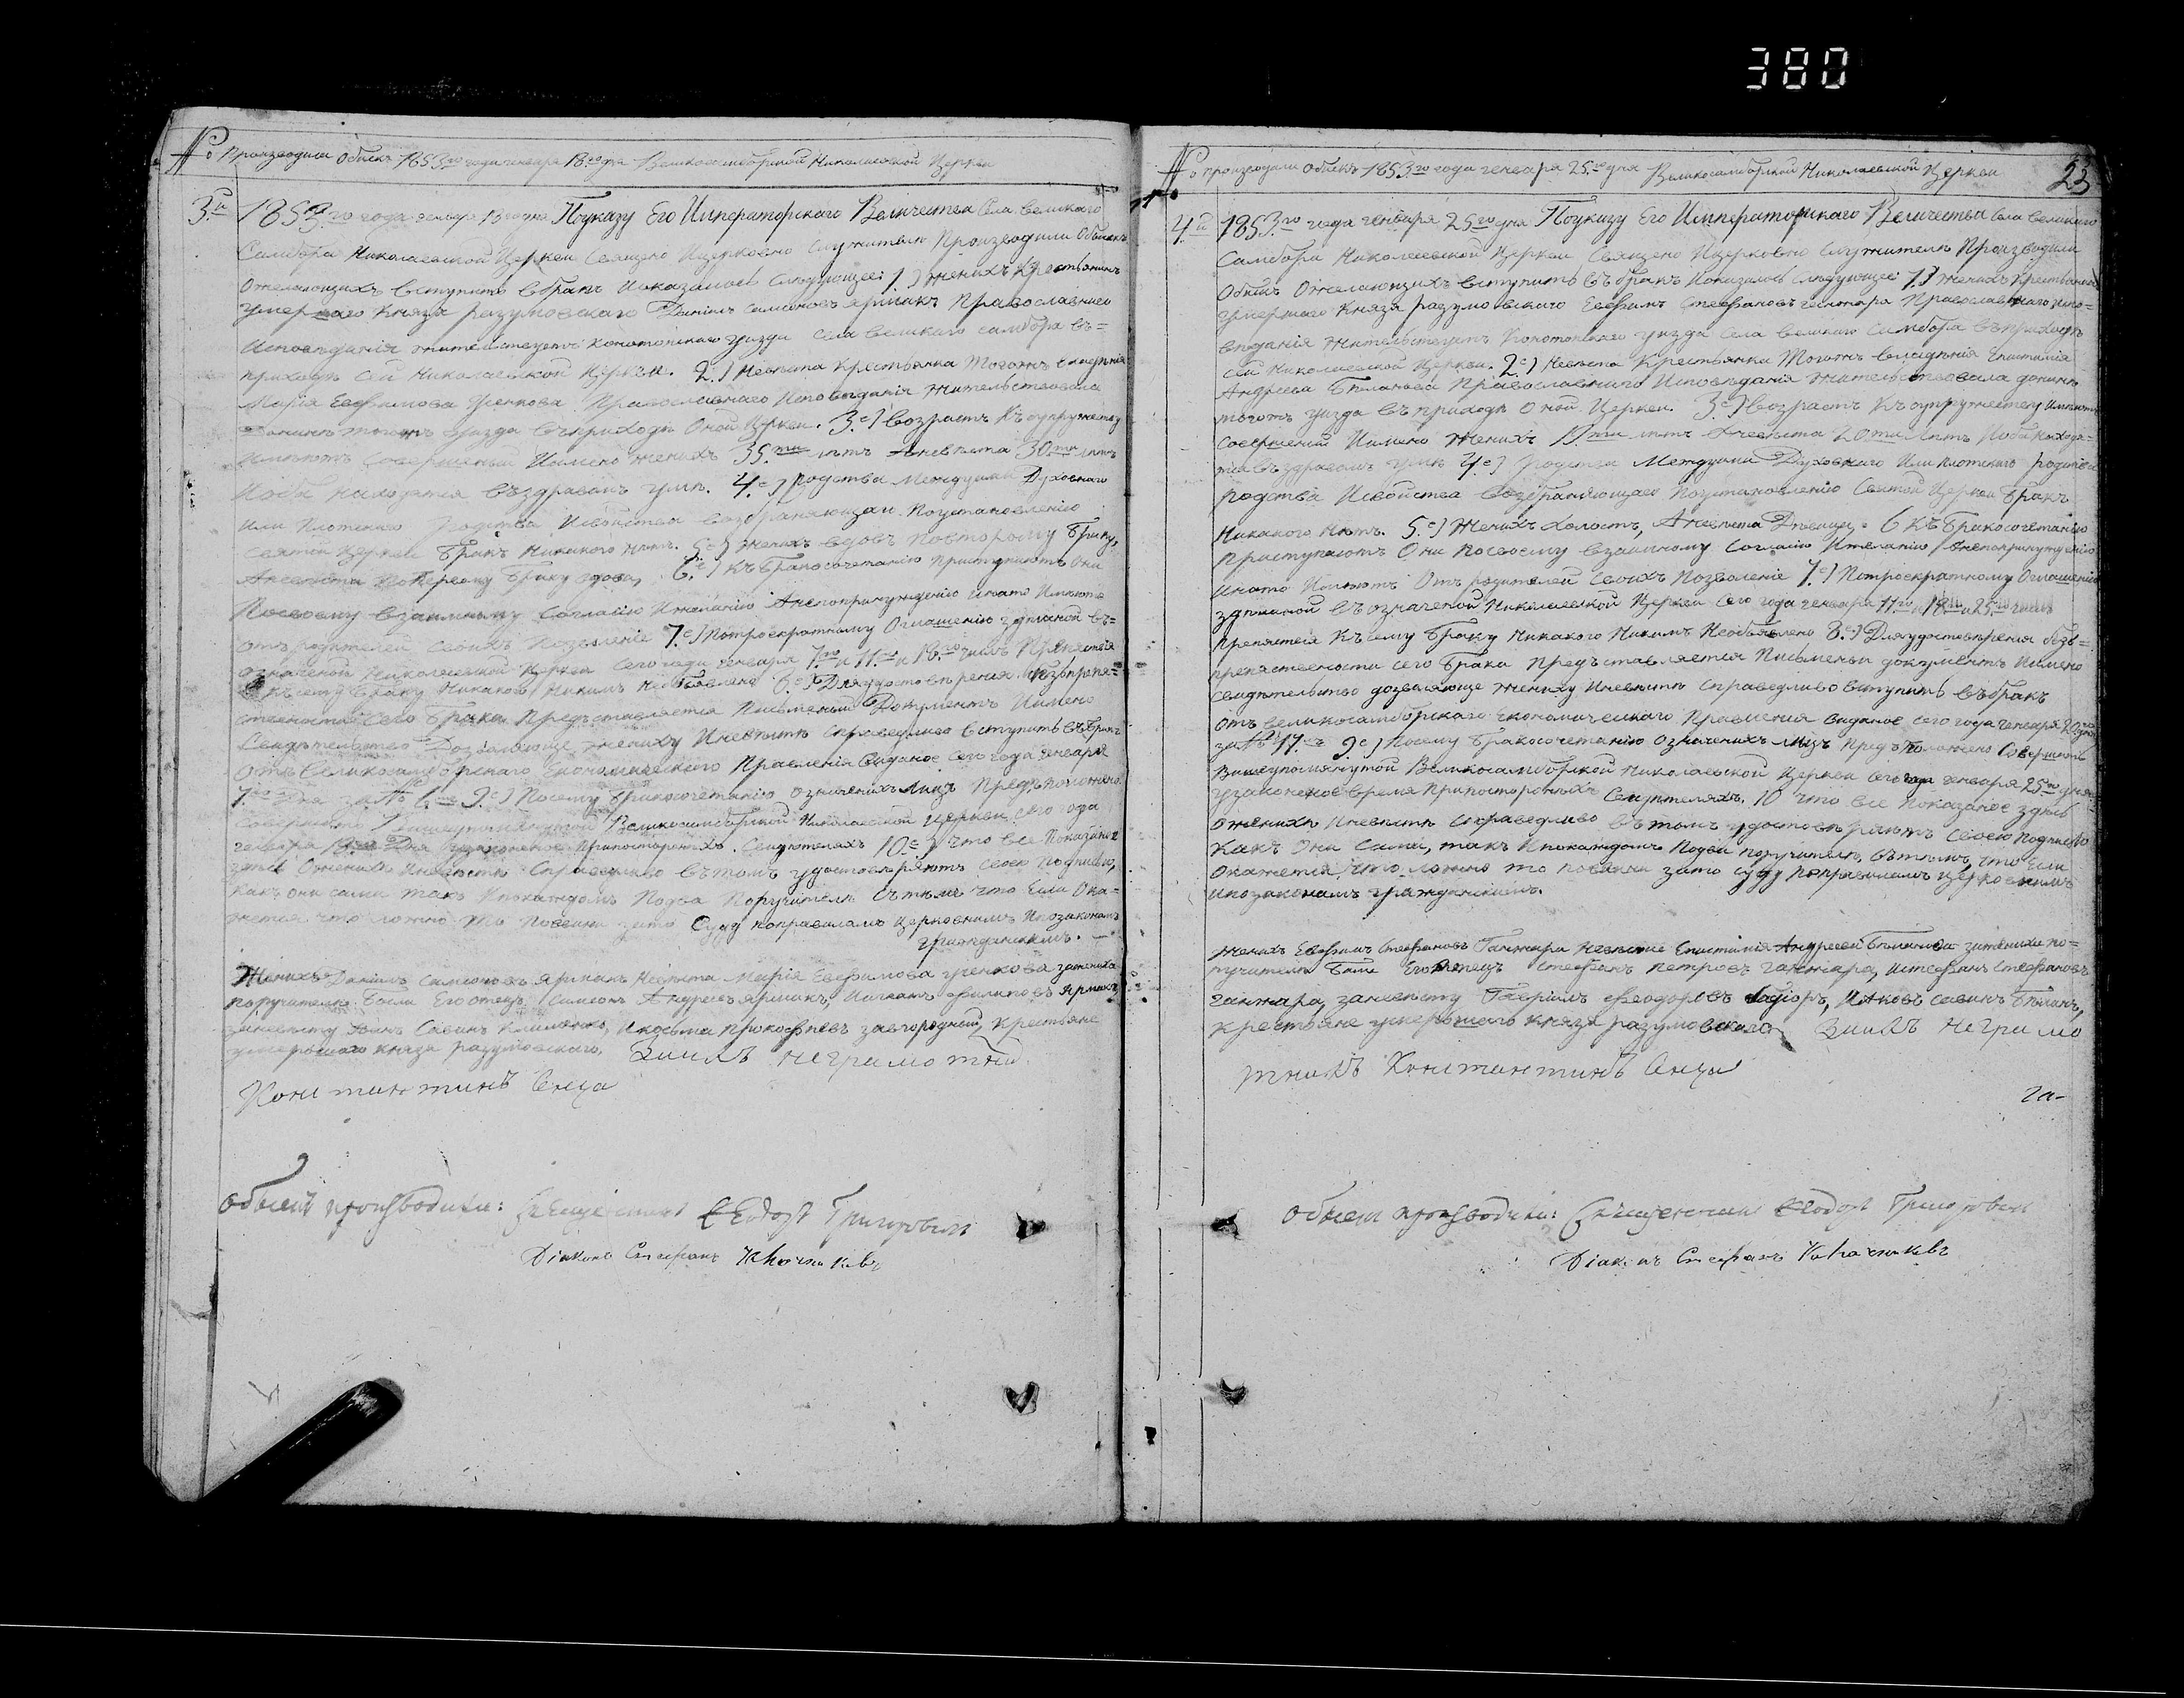 380
№ Производили Обыскъ 1853го года генваря 18го дня Великосамборской Николаевской Церкви
3.й 1853го года генваря 18го дня Поуказу Его Императорскаго Величества Села великаго
Самбора Николаевской Церкви Священо Ицерковно Служители Производили Обыскъ
Ожелающихъ вступить вбракъ Ипоказалось Слѣдующее: 1.) женихъ Крестьянинъ
умершаго Князя разумовскаго Даніилъ самсоновъ ярмакъ Православнаго
Исповѣданія жительствуетъ конотопскаго уезда села великаго самбора въ=
приходѣ сей Николаевской Церкви. 2.) Невѣста Крестьянка Тогожъ владѣнія
Марія Евфимова Православнаго Исповѣданія жительствовала
донинѣ тогожъ уезда въприходѣ Оной Церкви. 3.е) возрастъ Къ супружеству
имѣютъ Совершеный Имено женихъ 35ти лѣтъ Аневѣста 30ти лѣтъ
Иоба находятся въздравомъ умѣ. 4.е) родства Междуими Духовнаго
или Плотскаго родства Исвойства возбраняющаго Поустановленію
святой церкви бракъ Никакого нѣтъ. 5.е) женихъ вдовъ Повторому браку,
Аневѣста поПервому браку вдова, 6.е) къ Бракосочетанію Приступаютъ Они
Посвоему взаимному Согласію Ижеланію Анепопринужденію инато Имѣютъ
отъ родителей своихъ позволеніе 7.е) Потроекратному Оглашенію зделаной въ=
означеной Николаевской Церкви Сего года генваря 7.го и 11.го и 18.го числъ Препятствія
къ сему браку Никакого Никимъ Необъявлено 8.е) Для удостовѣренія безпрепя=
ственности Сего брака Предъставляется Письменый Документъ Имено
Свидѣтельство Дозволяюще жениху Иневѣстѣ справедливо вступить въбракъ
Отъ великосамборскаго Економическаго Правленія виданое Сего года генваря
7го Дня за № 6.мъ 9.е) Посему бракосочетанію означенихъ Лицъ Предъположено
Совершить Ввишеупомянутой Великосамборской Николаевской церкви сего года
генваря Дня узаконеное припостороныхъ Свидетеляхъ 10.е) что все Показаное
здѣсь Оженихѣ Иневѣстѣ Справедливо вътомъ удостовѣряютъ Своею подписью,
какъ они сами такъ Ипокаждомъ Подва Поручителя сътѣмъ что Если Ока=
жется что ложно то повинни зато Суду поправиламъ церковнимъ Ипозаконамъ
гражданскимъ. —
Женихъ Даніилъ самсоновъ ярмакъ Невѣста Марія Евфимова зажениха
поручители: Были Его отецъ, Самсонъ Андреевъ ярмакъ, филиповъ ярмакъ,
заневѣсту Савинъ Клименко, Икосьма Прокофіевъ завгородный, Крестьяне
умершаго князя разумовскаго. Заихъ неграмотныхъ
Константинъ Сенца
обыскъ производили: Священникъ Григоровичъ
Діаконъ Стефанъ
№ производили Обыскъ 1853.го года генваря 25.го дня Великосамборской Николаевской Церкви
23
4.й 1853.го года генваря 25го дня Поуказу Его Императорскаго Величества Села великаго
Самбора Николаевской Церкви Священо Ицерковно Служители Производили
Обыскъ Ожелающихъ вступить въбракъ Ипоказалось Слѣдующее 1.) женихъ Крестьянинъ
умершаго Князя разумовскаго Евфимъ Стефановъ ганжара Православнаго Испо=
вѣданія Жительствуетъ Конотопскаго уезда Села великаго Самбора въприходѣ
сей Николаевской Церкви. 2.е) Невѣста Крестьянка Тогожъ владѣнія
Андреева Бѣланова Православнаго Исповѣданія жительствовала донинѣ
тогожъ уезда въприходѣ Оной Церкви. 3.е) возрастъ Къ супружеству имѣютъ
Совершеный Имено женихъ лѣтъ Аневѣста 20ти лѣтъ Иоба находя=
тся въздравомъ умѣ 4.е) родства Междуими Духовнаго Или плотскаго
родства Исвойства Возбраняющаго Поустановленію Святой Церкви бракъ
Никакого нѣтъ. 5.е) Женихъ холостъ, Аневѣста Дѣвица. 6 Къ Бракосочетанію
Приступаютъ Они Посвоему взаимному Согласію Ижеланію Анепопринужденію
инато Имѣютъ Отъ родителей Своихъ Позволеніе 7.е) Потроекратному Оглашенію
зделаной въозначеной Николаевской Церкви Сего года генваря 11.го, 18.го и 25.го числъ
препятствія Къ сему браку Никакого Никимъ Необъявлено 8.е) Для удостовѣренія безъ=
препятствености сего брака Предъставляется Письменый документъ Имено
свидѣтельство дозволяюще жениху Иневѣстѣ справедливо вступить въбракъ
отъ великосамборскаго Економическаго Правленія виданое сего года генваря 20 дня
за № 17.мъ 9.е) Посему бракосочетанію Означенихъ Лицъ Предъположено Совершить
Ввишеупомянутой Великосамборской Николаевской Церкви Сего года генваря 25го дня
узаконеное время Припостороныхъ Свидѣтеляхъ. 10 что все показаное здѣсь
оженихѣ Иневѣстѣ Справедливо вътомъ удостовѣряютъ Своею подписью
какъ Они Сами, такъ Ипокаждомъ Подва поручителя, сътѣмъ, что Если
окажется, что ложно то повинни зато суду поправиламъ церковнимъ
ипозаконамъ гражданскимъ.
женихъ Евфимъ Стефановъ Ганжара невѣста Андреева Бѣланова зажениха по=
ручители Были Его Отецъ стефанъ петровъ ганжара, Истефанъ Стефановъ
ганжара, заневѣсту Гавріилъ феодоровъ Иаковъ савинъ Бѣланъ,
крестьяне умершаго князя разумовскаго Заихъ неграмо
тныхъ Константинъ Сенца
га-
обыскъ производили: Священникъ Григоровичъ
Діаконъ Стефанъ